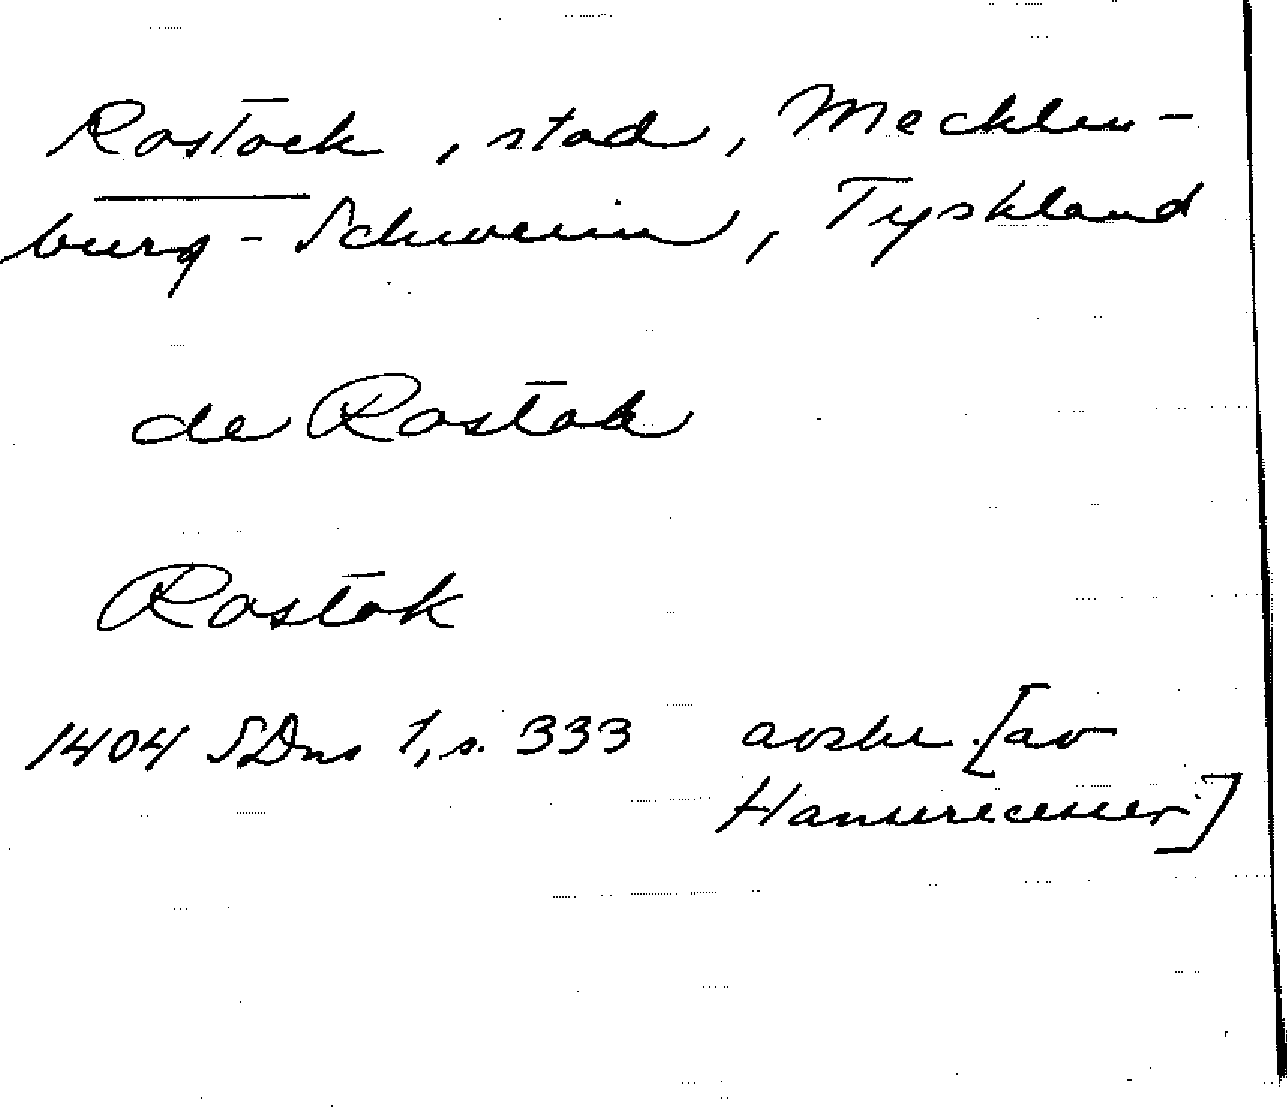 Rostock, stad, Mecklen-
burg-Schwerin, Tyskland
de Rostok
Rostok
1404 SDns 1, s. 333 avskr. [av
Hanserecesser]